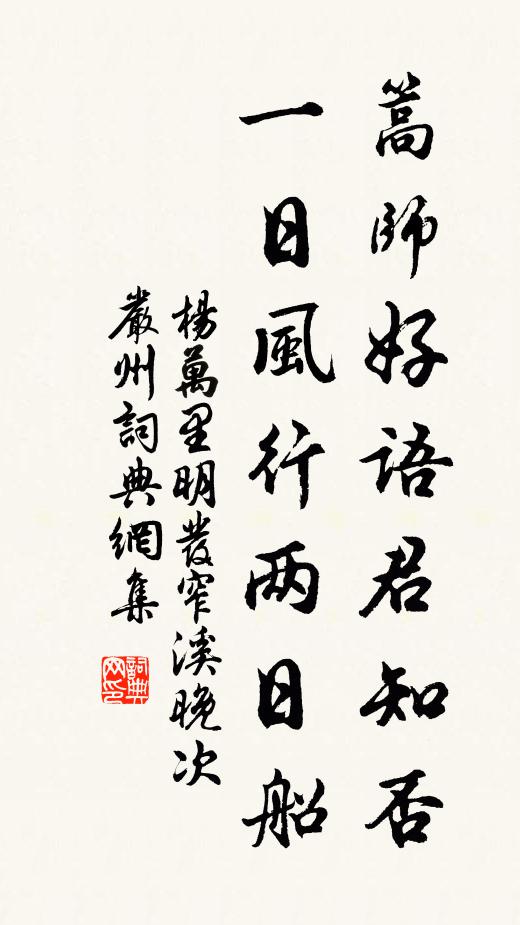 篙師好語君知否
一日風行两日船
楊萬里明發窄溪晚次
嚴州詞典網集
詞典網印